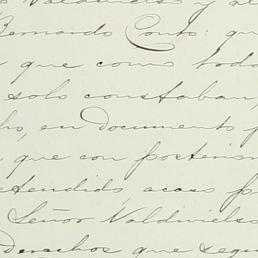 Valdivielso y al
Bernardo Couto: qu
que como toda
solo constaban,
ho, en documento p
que con posteriori
etendido, acaso p
Señor Valdivielso
Derechos que segu